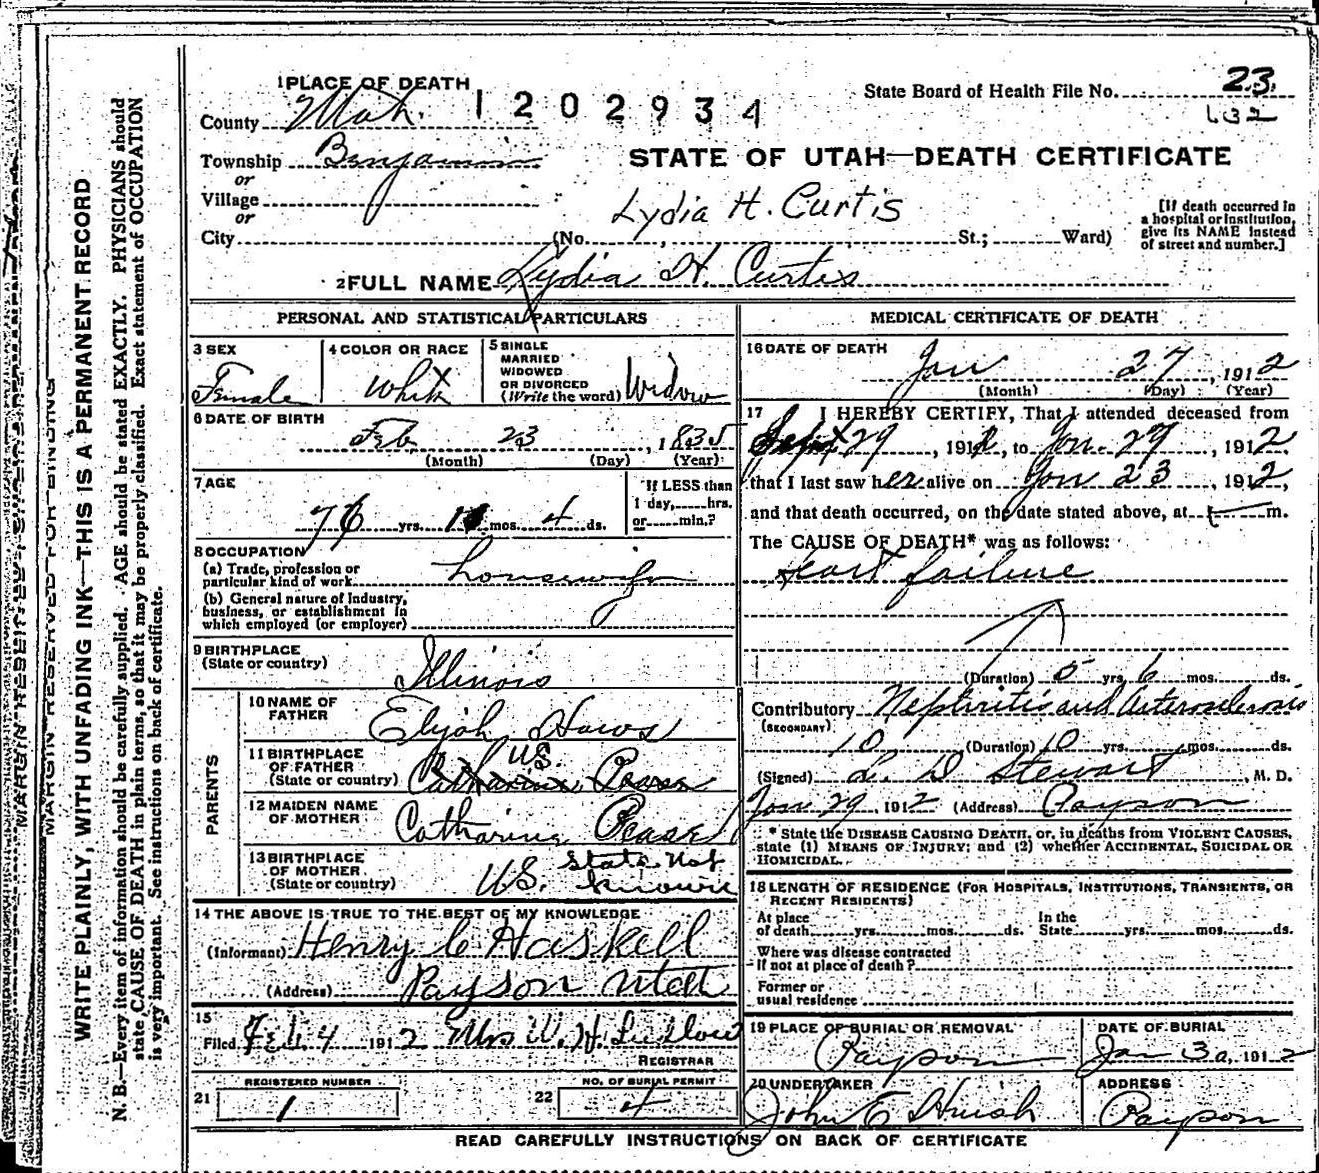 1 PLACE OF DEATH
State Board of Health File No. 23
1202934
132
County Utah.
Township Benjamin
or
Village
or
City (No. , St.; Ward)
STATE OF UTAH—DEATH CERTIFICATE
Lydia H. Curtis
[If death occurred in
a hospital or institution,
give its NAME instead
of street and number.]
2 FULL NAME Lydia H. Curtis
PERSONAL AND STATISTICAL PARTICULARS
3 SEX
Female
4 COLOR OR RACE
White
5 SINGLE
MARRIED
WIDOWED
OR DIVORCED
(Write the word) Widow
6 DATE OF BIRTH
Feb 23, 1835
(Month) (Day) (Year)
7 AGE
76 yrs. 11 mos. 4 ds.
If LESS than
1 day, hrs.
or min.?
8 OCCUPATION
(a) Trade, profession or
particular kind of work housewife
(b) General nature of industry,
business, or establishment in
which employed (or employer)
9 BIRTHPLACE
(State or country)
Illinois
PARENTS
10 NAME OF
FATHER
Elijah Haws
11 BIRTHPLACE
OF FATHER
(State or country)
U.S.
12 MAIDEN NAME
OF MOTHER
Catharine Pease
13 BIRTHPLACE
OF MOTHER
(State or country)
U.S. State Not
Known
14 THE ABOVE IS TRUE TO THE BEST OF MY KNOWLEDGE
(Informant) Henry C Haskell
(Address) Payson Utah
15
Filed Feb. 4 1912 Mrs W. H. Ludlow
REGISTRAR
21 REGISTERED NUMBER
1
22 NO. OF BURIAL PERMIT
4
MEDICAL CERTIFICATE OF DEATH
16 DATE OF DEATH
Jan 27, 1912
(Month) (Day) (Year)
17 I HEREBY CERTIFY, That I attended deceased from
Sept 29, 191 , to Jan. 27, 1912
that I last saw her alive on Jan 23, 1912,
and that death occurred, on the date stated above, at m.
The CAUSE OF DEATH* was as follows:
Heart failure
(Duration) 5 yrs. 6 mos. ds.
Contributory Nephritis and Arterosclerosis
(SECONDARY)
10 (Duration) 10 yrs. mos. ds.
(Signed) L. D Stewart, M. D.
Jan 29, 1912 (Address) Payson
* State the DISEASE CAUSING DEATH, or, in deaths from VIOLENT CAUSES,
state (1) MEANS OF INJURY; and (2) whether ACCIDENTAL, SUICIDAL OR
HOMICIDAL.
18 LENGTH OF RESIDENCE (FOR HOSPITALS, INSTITUTIONS, TRANSIENTS, OR
RECENT RESIDENTS)
At place
of death yrs. mos. ds.
In the
State yrs. mos. ds.
Where was disease contracted
If not at place of death?
Former or
usual residence
19 PLACE OF BURIAL OR REMOVAL
Payson
DATE OF BURIAL
Jan 30, 1912
20 UNDERTAKER
John E Huish
ADDRESS
Payson
READ CAREFULLY INSTRUCTIONS ON BACK OF CERTIFICATE
MARGIN RESERVED FOR BINDING
WRITE PLAINLY, WITH UNFADING INK—THIS IS A PERMANENT RECORD
N. B.—Every item of information should be carefully supplied. AGE should be stated EXACTLY. PHYSICIANS should
state CAUSE OF DEATH in plain terms, so that it may be properly classified. Exact statement of OCCUPATION
is very important. See instructions on back of certificate.